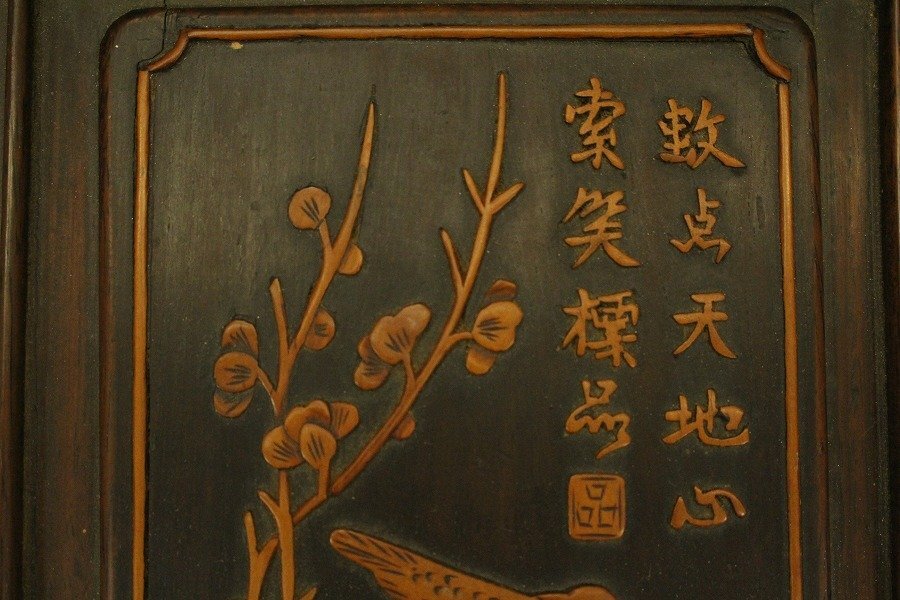 数点天地心
索笑標品
品